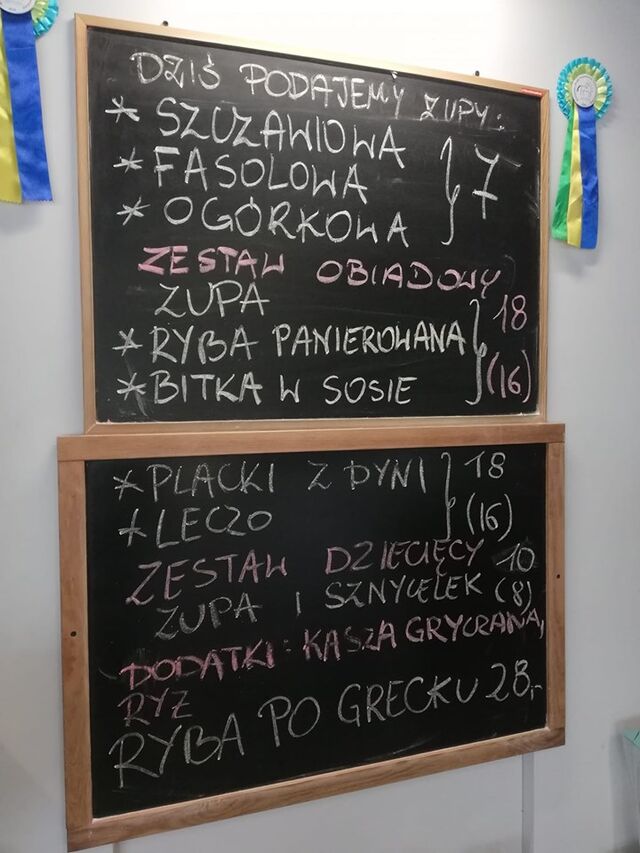 DZIŚ PODAJEMY ZUPY:
* SZCZAWIOWA
* FASOLOWA } 7
* OGÓRKOWA
ZESTAW OBIADOWY
ZUPA } 18
* RYBA PANIEROWANA
* BITKA W SOSIE (16)
* PLACKI Z DYNI } 18
* LECZO (16)
ZESTAW DZIECIĘCY 10
ZUPA I SZNYCELEK (8)
DODATKI: KASZA GRYCZANA,
RYZ
RYBA PO GRECKU 28,-